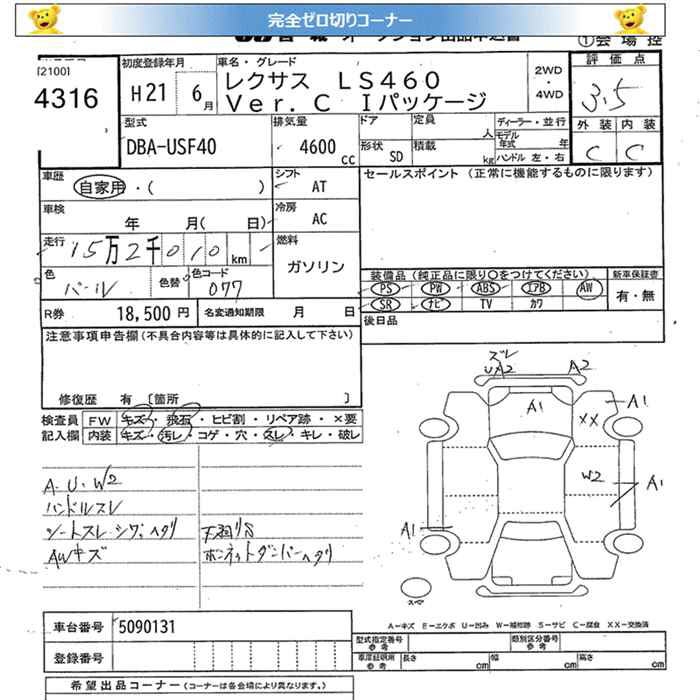 完全ゼロ切りコーナー
オークション出品申込書
①会場控
[2100]
4316
初度登録年月
H21 6月
車名・グレード
レクサス LS460
Ver. C Iパッケージ
2WD
・
4WD
評価点
3.5
外装 内装
C C
型式
DBA-USF40
排気量
4600 cc
ドア
形状 SD
定員
人
積載
kg
ディーラー・並行
モデル
年式 年
ハンドル 左・右
車歴
自家用・( )
シフト
AT
セールスポイント (正常に機能するものに限ります)
車検
年 月( 日)
冷房
AC
走行
15万2千010km
燃料
ガソリン
色
パール
色替
色コード
077
装備品 (純正品に限り○をつけてください)
新車保証書
PS PW ABS エアB AW
SR ナビ TV カワ
有・無
R券 18,500 円
名変通知期限 月 日
後日品
注意事項申告欄 (不具合内容等は具体的に記入して下さい)
修復歴 有 [箇所 ]
検査員
記入欄
FW キズ・飛石・ヒビ割・リペア跡・×要
内装 キズ・汚レ・コゲ・穴・スレ・キレ・破レ
A・U・W2
ハンドルスレ
シートスレ・シワ・ヘタリ
AWキズ
天張りS
ボンネットダンパーヘタリ
ズレ
UA2
A2
A1
XX
A1
W2
A1
A1
スペア
A-キズ E-エクボ U-凹み W-補修跡 S-サビ C-腐食 XX-交換済
車台番号 5090131
登録番号
型式指定番号
類別区分番号
車庫証明用
長さ cm 幅 cm 高さ cm
希望出品コーナー (コーナーは各会場により異なります。)